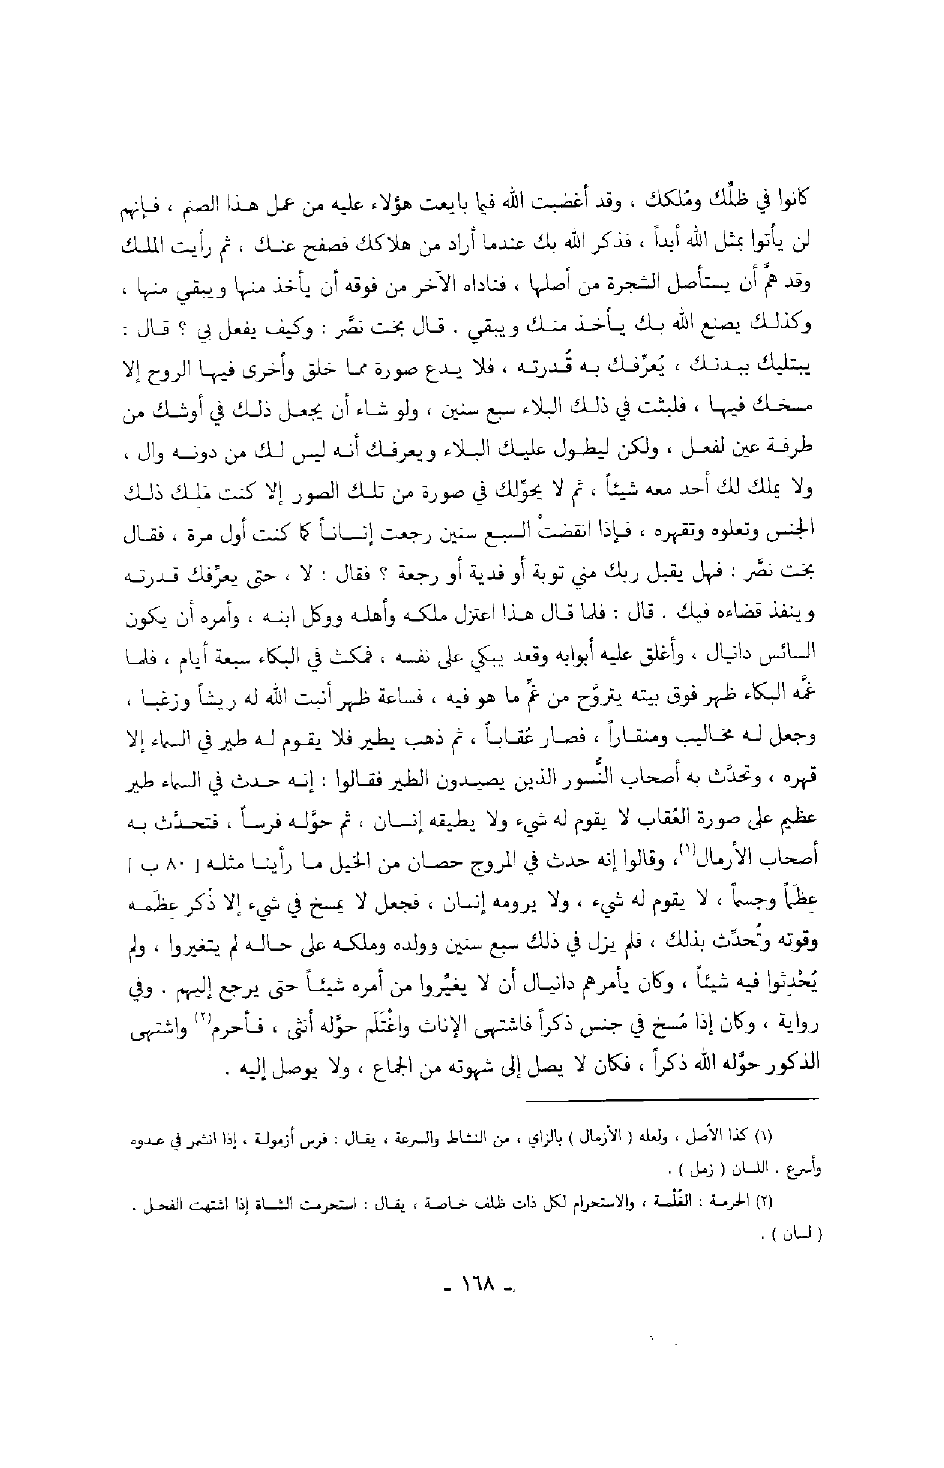 كانوا في ظلّك ومُلكك ، وقد أغضبت الله فيما بايعت هؤلاء عليه من عمل هـذا الصنم ، فـإنهم
لن يأتوا بمثل الله أبداً ، فذكر الله بك عندما أراد من هلاكك فصفح عنـك ، ثم رأيت الملـك
وقد همَّ أن يستأصل الشجرة من أصلها ، فناداه الآخر من فوقه أن يأخذ منها ويبقي منها ،
وكذلـك يصنع الله بـك يـأخـذ منـك ويبقي . قـال بخت نصَّر : وكيف يفعل بي ؟ قـال :
يبتليك ببـدنـك ، يُعرّفـك بـه قُـدرتـه ، فلا يـدع صورة ممـا خلق وأخرى فيهـا الروح إلا
مسخـك فيهـا ، فلبثت في ذلـك البلاء سبع سنين ، ولو شـاء أن يجعـل ذلـك في أوشـك من
طرفـة عين لفعـل ، ولكن ليطـول عليـك البـلاء ويعرفـك أنـه ليس لـك من دونـه وال ،
ولا يملك لك أحد معه شيئاً ، ثم لا يحوّلك في صورة من تلـك الصور إلا كنت مَلِـك ذلـك
الجنس وتعلوه وتقهره ، فـإذا انقضتْ السبع سنين رجعت إنسـانـاً كما كنت أول مرة ، فقـال
بخت نصَّر : فهل يقبل ربك مني توبة أو فدية أو رجعة ؟ فقال : لا ، حتى يعرّفك قـدرتـه
وينفذ قضاءه فيك . قال : فلما قـال هـذا اعتزل ملكـه وأهلـه ووكل ابنـه ، وأمره أن يكون
السائس دانيال ، وأغلق عليه أبوابه وقعد يبكي على نفسـه ، فمكث في البكاء سبعة أيام ، فلمـا
غمَّه البكاء ظهر فوق بيته يتروَّح من غمِّ ما هو فيه ، فساعة ظهر أنبت الله له ريشاً وزغبا ،
وجعل لـه مخاليب ومنقاراً ، فصـار عُقـابـاً ، ثم ذهب يطير فلا يقوم لـه طير في السماء إلا
قهره ، وتحدَّث به أصحاب النُّسور الذين يصيدون الطير فقالوا : إنـه حـدث في السماء طير
عظيم على صورة العُقاب لا يقوم له شيء ولا يطيقه إنسـان ، ثم حوَّلـه فرسـاً ، فتحدَّث بـه
أصحاب الأرمال(١)، وقالوا إنه حدث في المروج حصان من الخيل مـا رأينـا مثلـه [ ٨٠ ب ]
عِظَماً وجسماً ، لا يقوم له شيء ، ولا يرومه إنسـان ، فجعل لا يمسخ في شيء إلا ذُكر عِظَمـه
وقوته وتُحدِّث بذلك ، فلم يزل في ذلك سبع سنين وولده وملكه على حالـه لم يتغيروا ، ولم
يُحْدِثوا فيه شيئاً ، وكان يأمرهم دانيـال أن لا يغيِّروا من أمره شيئـاً حتى يرجع إليهم . وفي
رواية ، وكان إذا مُسخ في جنس ذكراً فاشتهى الإناث واغْتَلَم حوّله أنثى ، فـأحرم(٢) واشتهى
الذكور حوَّله الله ذكراً ، فكان لا يصل إلى شهوته من الجماع ، ولا يوصل إليه .
(١) كذا الأصل ، ولعله ( الأزمال ) بالزاي ، من النشاط والسرعة ، يقال : فرس أزمولـة ، إذا انشمر في عـدوه
وأسرع . اللسان ( زمل ) .
(٢) الحرمـة : الغُلْمة ، والاستحرام لكل ذات ظلف خـاصـة ، يقـال : استحرمت الشـاة إذا اشتهت الفحـل .
( لسان ) .
- ١٦٨ -